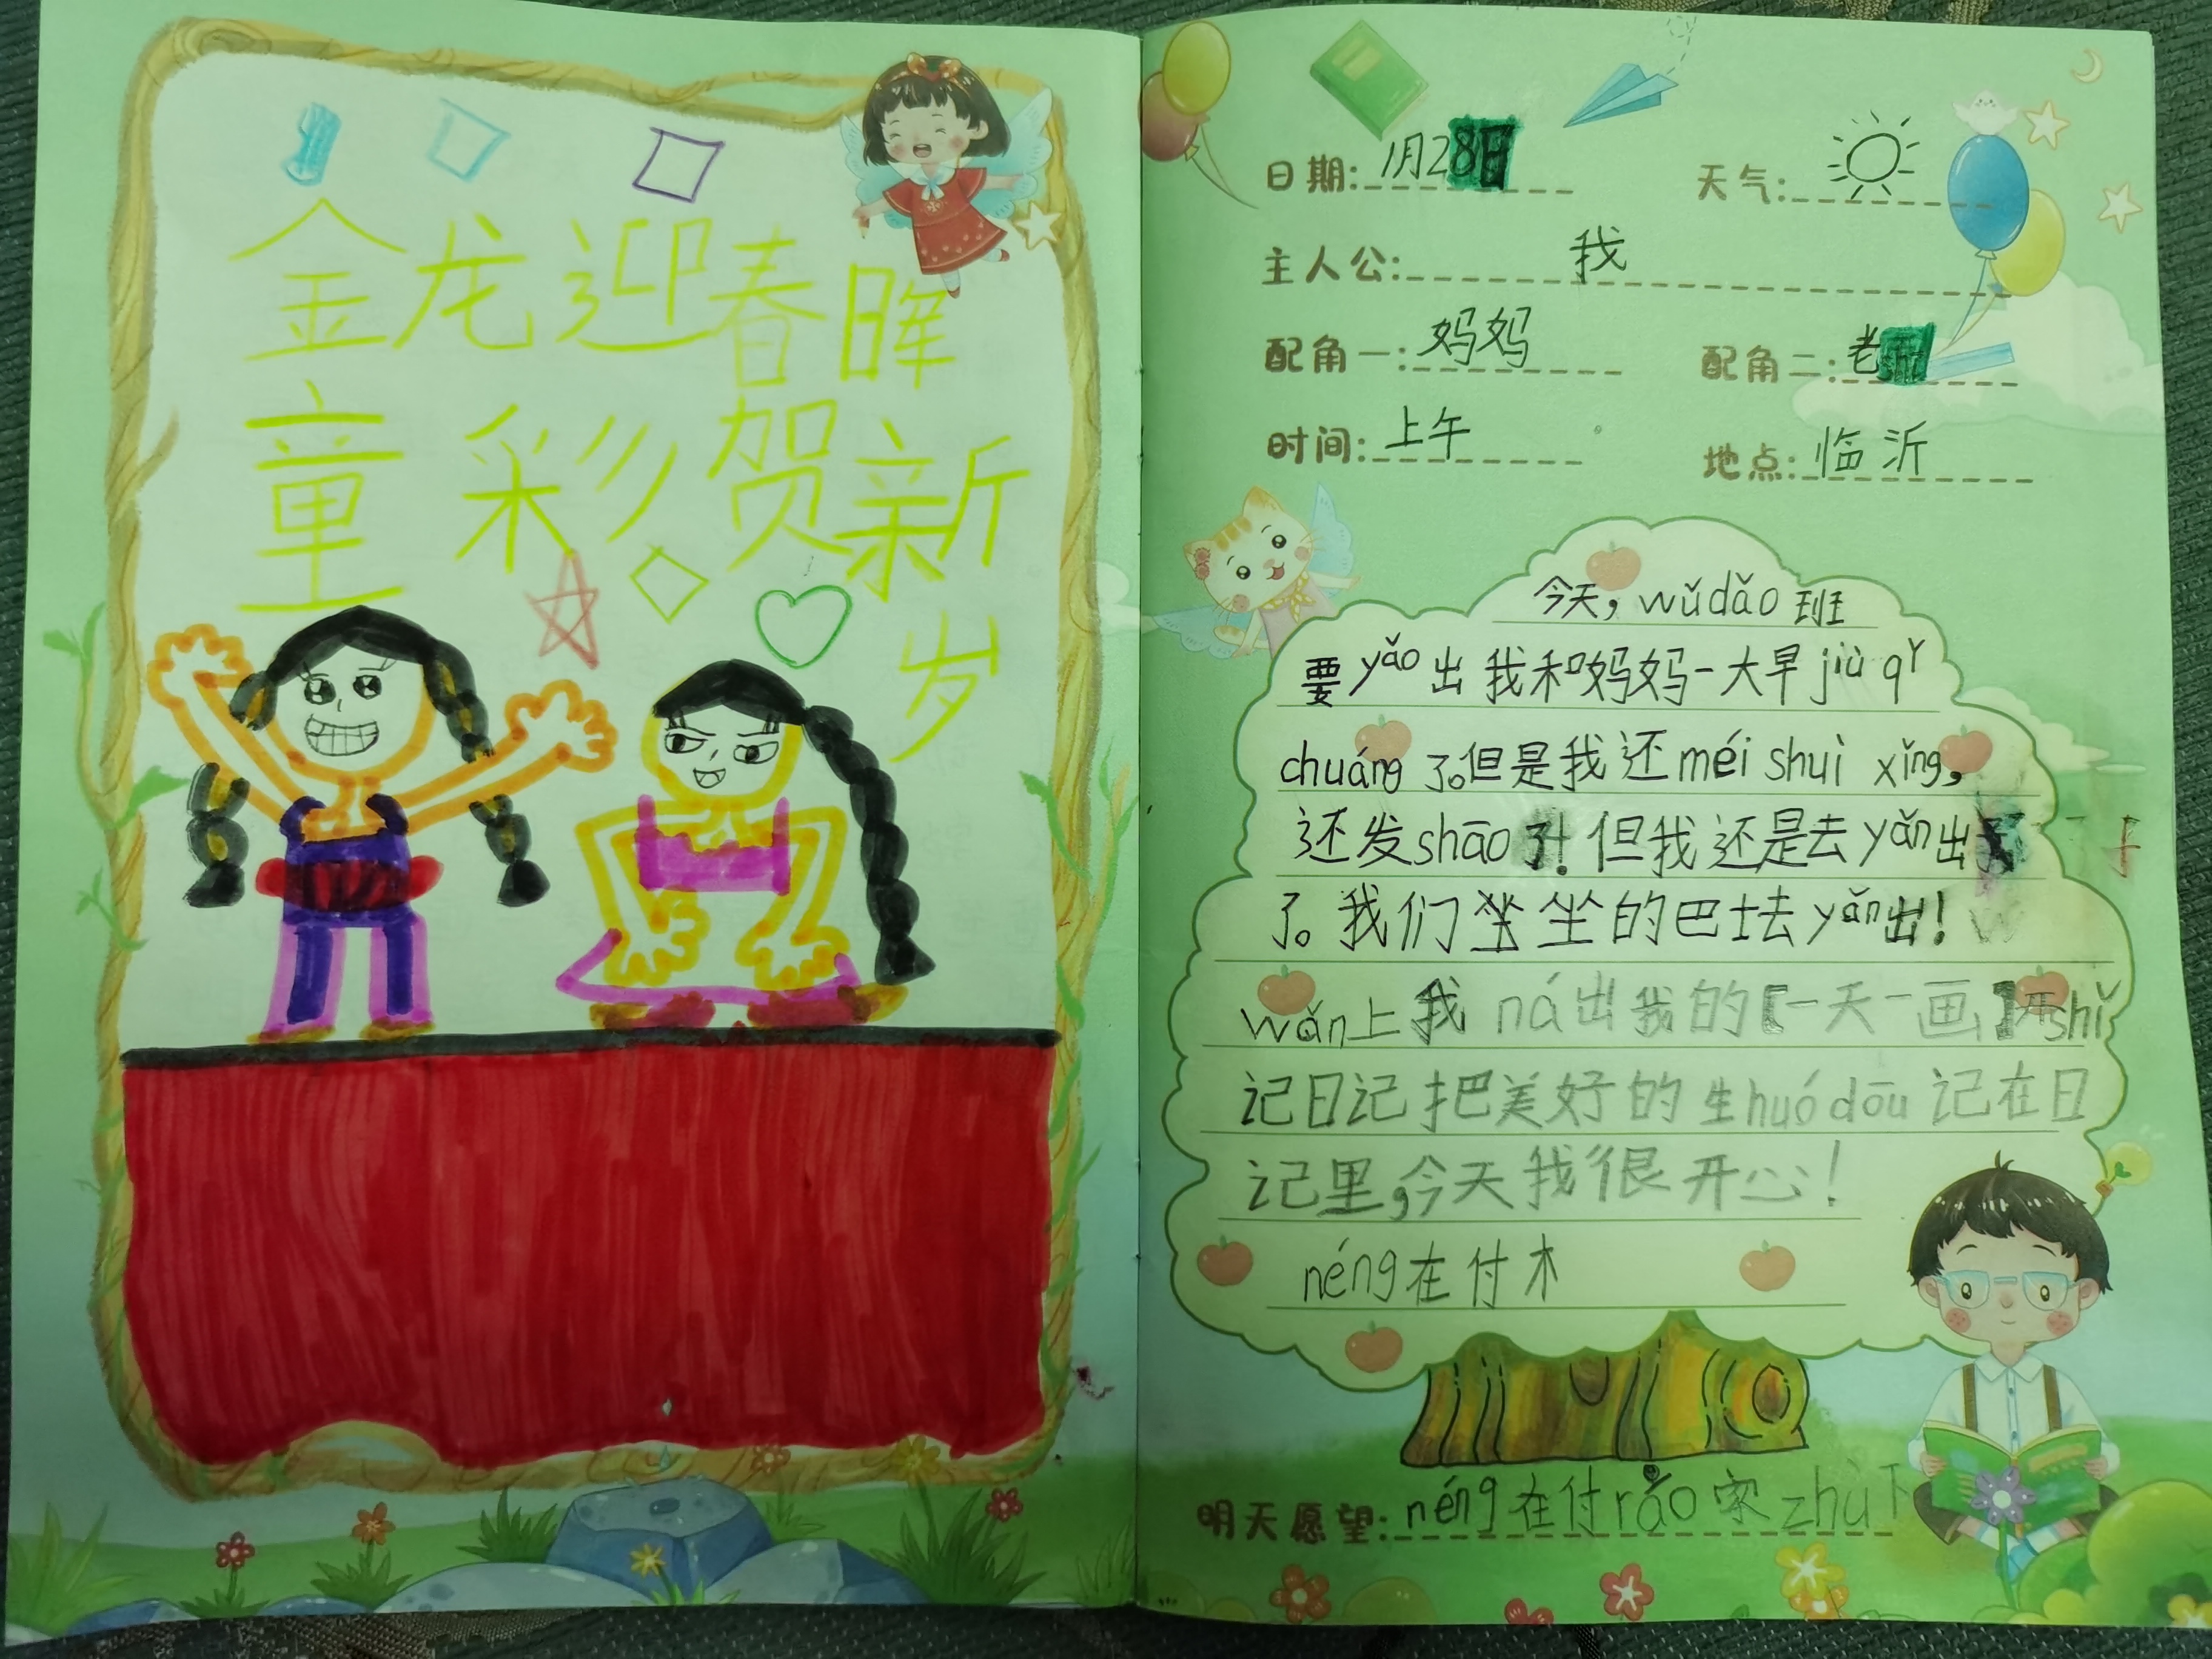 金龙迎春晖
童彩贺新
岁
日期: 1月28日
天气:
主人公: 我
配角一: 妈妈
配角二: 老
时间: 上午
地点: 临沂
今天，wǔdǎo 班
要yǎo出 我和妈妈一大早 jiù qǐ
chuáng 了。但是我还 méi shuì xǐng，
还发shāo了！但我还是去yǎn出
了。我们坐坐的巴士去yǎn出！
wǎn上我 ná出我的【一天一画】开shǐ
记日记把美好的生huódōu记在日
记里，今天我很开心！
néng在付木
明天愿望: néng在付rǎo家zhù下